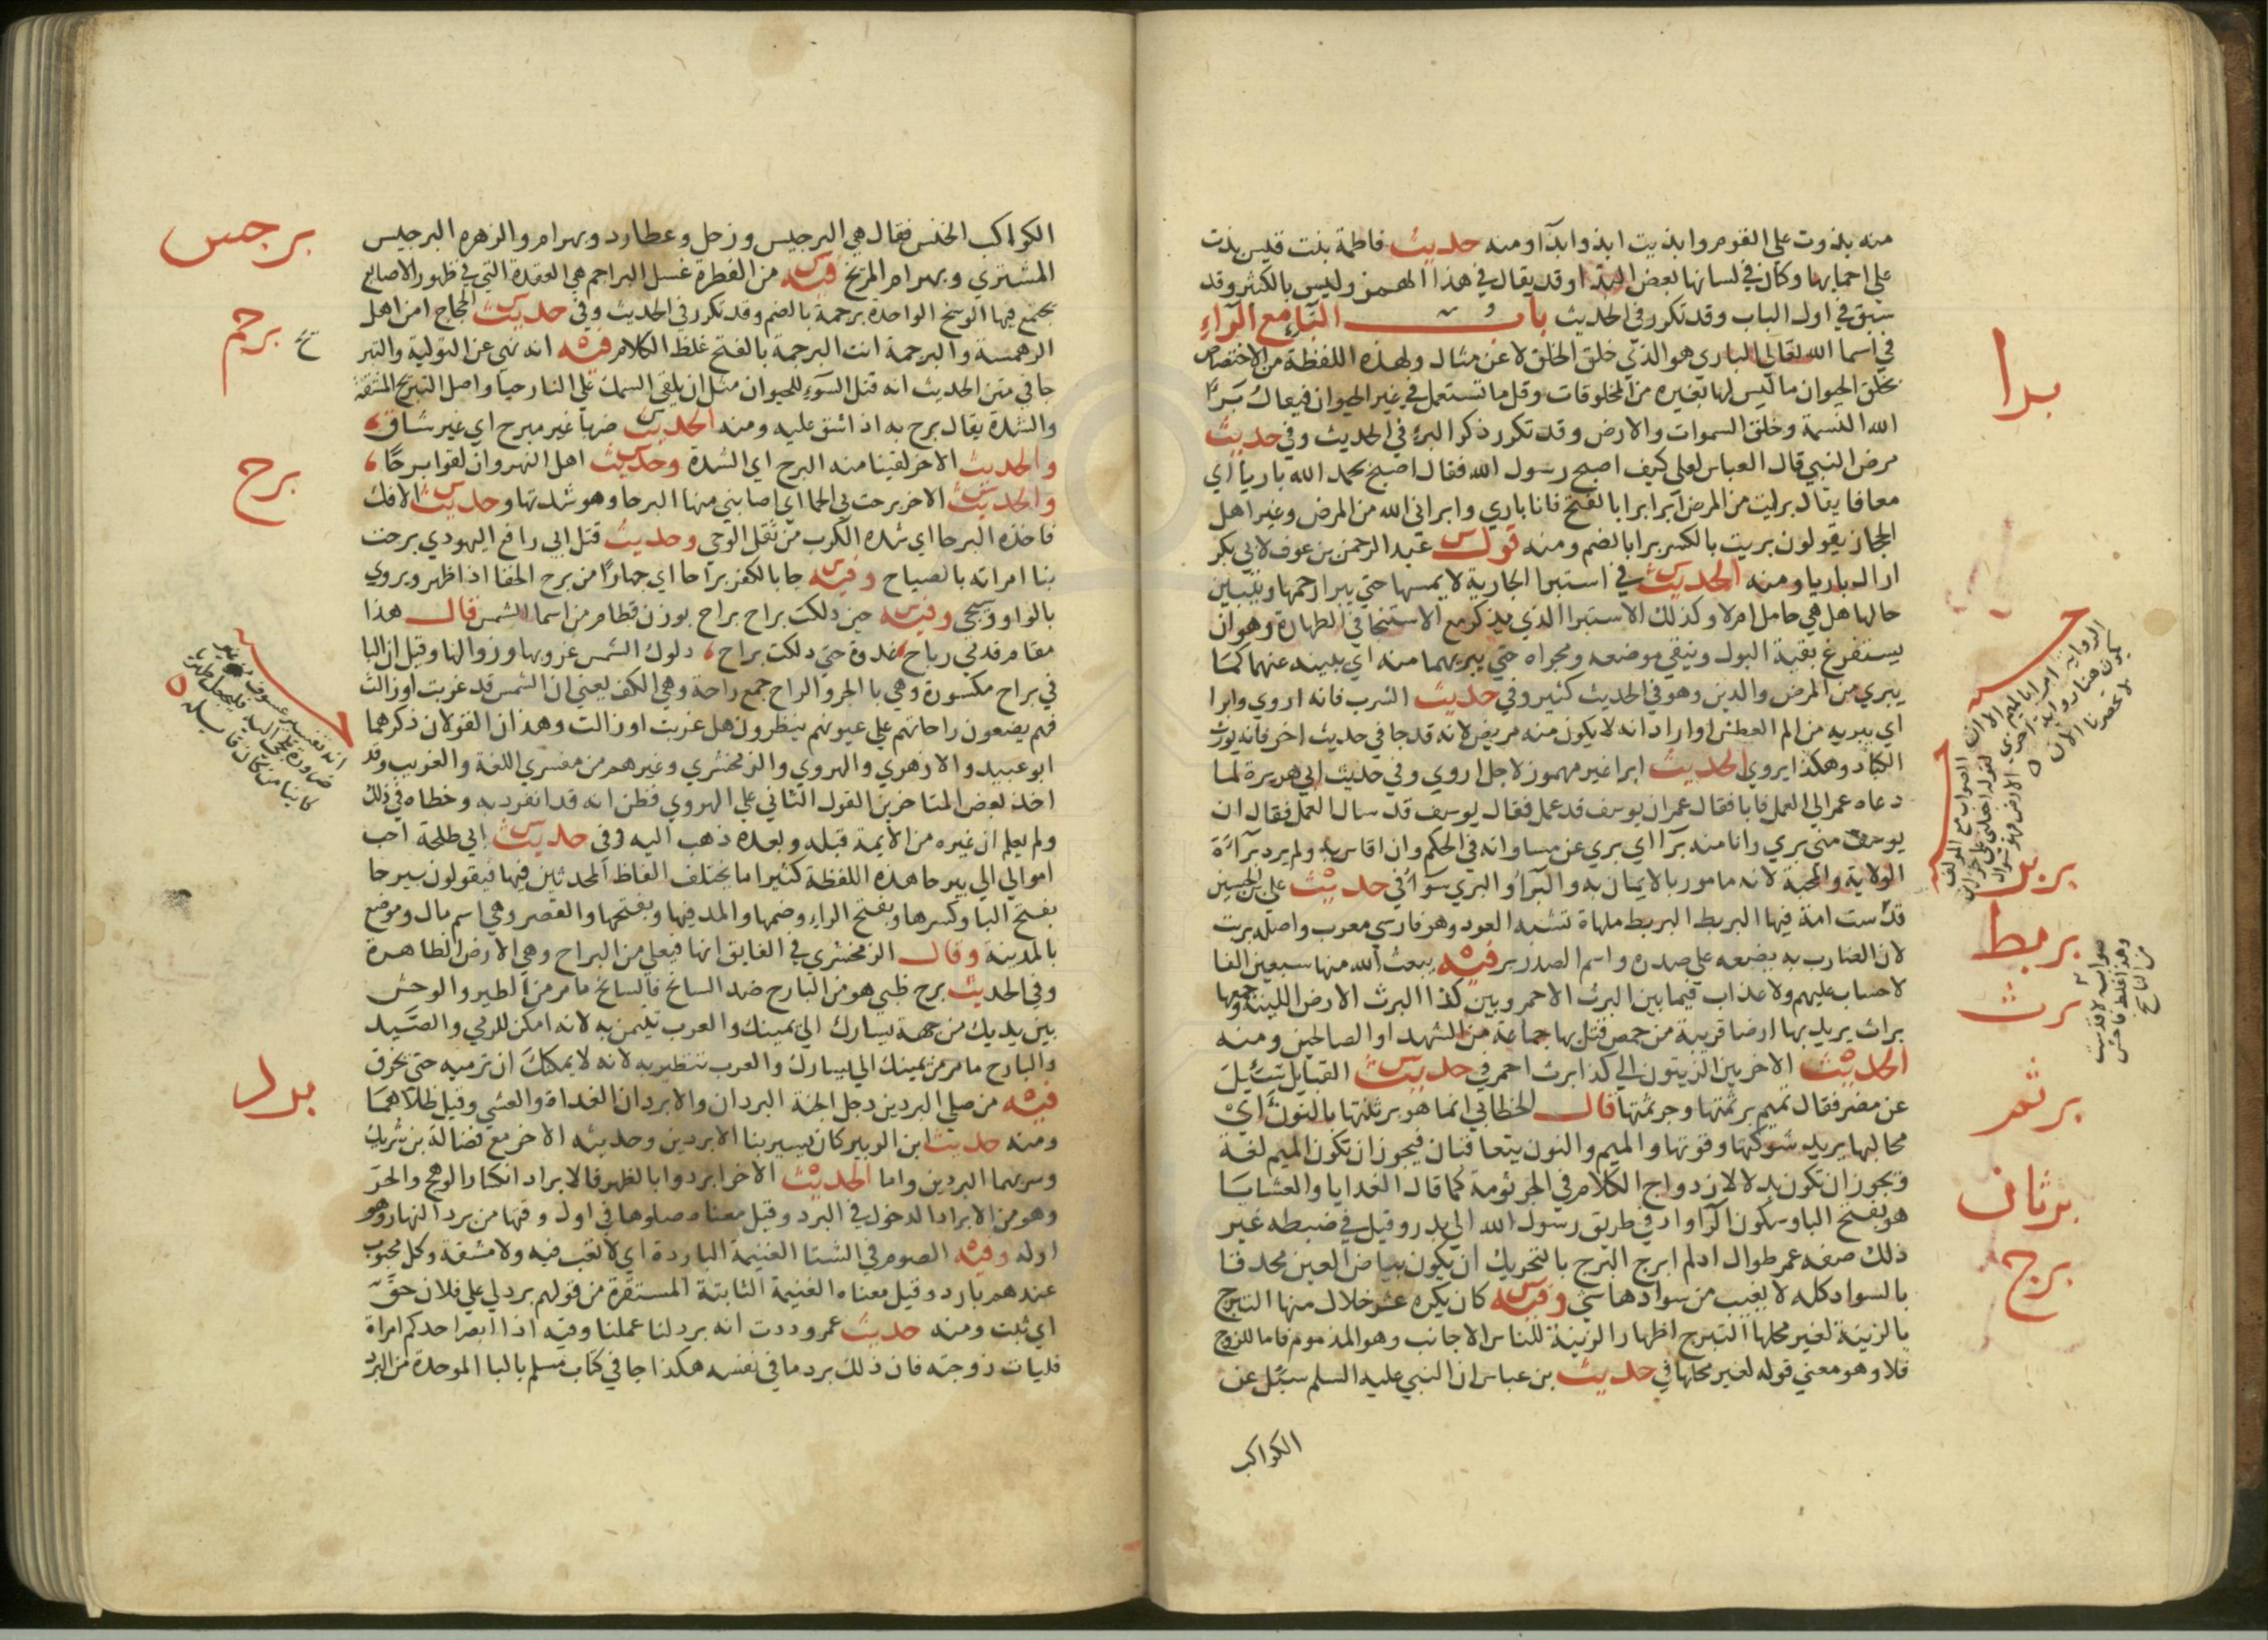 منه بذوت على القوم وابذيت ابذو ابذآ ومنه حديث فاطمة بنت قيس بذت
على احمايها وكان في لسانها بعض البذاء وقد يقال في هذا الهمز وليس بالكثير وقد
سبق في اول الباب وقد تكرر في الحديث باب البآء مع الرآء
في اسما الله تعالى الباري هو الذي خلق الخلق لا عن مثال ولهذه اللفظة من الاختصاص
بخلق الحيوان ما ليس لها بغيره من المخلوقات وقل ما تستعمل في غير الحيوان فيقال برأ
الله النسمة وخلق السموات والارض وقد تكرر ذكر البرء في الحديث وفي حديث
مرض النبي قال العباس لعلي كيف اصبح رسول الله فقال اصبح بحمد الله باريا اي
معافا يقال بريت من المرض ابرا برا بالفتح فانا باري وابراني الله من المرض وغير اهل
الحجاز يقولون بريت بالكسر برا بالضم ومنه قول عبد الرحمن بن عوف لابي بكر
اراك باريا ومنه الحديث في استبرا الجارية لا يمسها حتى يبرا رحمها ويتبين
حالها هل هي حامل ام لا وكذلك الاستبرا الذي يذكر مع الاستنجا في الطهارة وهو ان
يستفرغ بقية البول وينقي موضعه ومجراه حتى يبريهما منه اي يبينه عنهما كما
يبري من المرض والدين وهو في الحديث كثير وفي حديث الشرب فانه اروي وابرا
اي يبريه من الم العطش او اراد انه لا يكون منه مريض لانه قد جا في حديث اخر فانه يورث
الكباد وهكذا يروي الحديث ابرا غير مهموز لاجل اروي وفي حديث ابي هريرة لما
دعاه عمر الى العمل فابا فقال عمر ان يوسف قد عمل فقال يوسف قد سال العمل فقال ان
يوسف مني بري وانا منه برآ اي بري عن مساواته في الحكم وان اقاس به ولم يرد برآءة
الولاية والمحبة لانه مامور بالايمان به والبرآء والبري سوآء في حديث علي بن الحسين
قدست امة فيها البربط البربط ملهاة تشبه العود وهو فارسي معرب واصله بربت
لان الضارب به يضعه على صدره واسم الصدر بر فيه يبعث الله منها سبعين الفا
لا حساب عليهم ولا عذاب فيما بين البرث الاحمر وبين كذا البرث الارض اللينة وجمعها
براث يريد بها ارضا قريبة من حمص قتل بها جماعة من الشهداء والصالحين ومنه
الحديث الاخر بين الزيتون الى كذا برث احمر في حديث القبايل سئل
عن مضر فقال تميم برثمتها وجرثمتها قال الخطابي انما هو برثنتها بالنون اي
مخالبها يريد شوكتها وقوتها والميم والنون يتعاقبان فيجوز ان تكون الميم لغة
ويجوز ان تكون بدلا لازدواج الكلام في الجرثومة كما قال الغدايا والعشايا
هو بفتح البا وسكون الرآ واد في طريق رسول الله الى بدر وقيل في ضبطه غير
ذلك صفة عمر طوال ادلم ابرج البرج بالتحريك ان يكون بياض العين محدقا
بالسواد كله لا يغيب من سوادها شي وفيه كان يكره عشر خلال منها التبرج
بالزينة لغير محلها التبرج اظهار الزينة للناس الاجانب وهو المذموم فاما للزوج
فلا وهو معني قوله لغير محلها في حديث بن عباس ان النبي عليه السلم سئل عن
الكواكب
برا
بربر
بربط
برث
برثم
برثان
برج
الكواكب الخنس فقال هي البرجيس وزحل وعطارد وبهرام والزهره البرجيس
المشتري وبهرام المريخ فيه من الفطرة غسل البراجم هي العقدة التي في ظهور الاصابع
يجتمع فيها الوسخ الواحدة برجمة بالضم وقد تكرر في الحديث وفي حديث الحجاج امن اهل
الرهمسة والبرجمة انت البرجمة بالفتح غلظ الكلام فيه انه نهي عن التولية والتبريح
جا في متن الحديث انه قتل السوء للحيوان مثل ان يلقي السمك على النار حيا واصل التبريح المشقة
والشدة يقال برح به اذا شق عليه ومنه الحديث ضربا غير مبرح اي غير شاق
والحديث الاخر لقينا منه البرح اي الشدة وحديث اهل النهروان لقوا برحا
والحديث الاخر برحت بي الحما اي اصابني منها البرحا وهو شدتها وحديث الافك
فاخذه البرحا اي شدة الكرب من ثقل الوحي وحديث قتل ابي رافع اليهودي برحت
بنا امراته بالصياح وفيه جا بالكفر براحا اي جهارا من برح الخفا اذا ظهر ويروي
بالواو وسيجي وفيه حين دلكت براح براح بوزن قطام من اسما الشمس قال هذا
مقام قدمي رباح غدوة حتى دلكت براح دلوك الشمس غروبها وزوالها وقيل ان البا
في براح مكسورة وهي با الجر والراح جمع راحة وهي الكف يعني ان الشمس قد غربت او زالت
فهم يضعون راحاتهم على عيونهم ينظرون هل غربت او زالت وهذان القولان ذكرهما
ابو عبيد والازهري والهروي والزمخشري وغيرهم من مفسري اللغة والغريب وقد
اخذ بعض المتاخرين القول الثاني على الهروي فظن انه قد انفرد به وخطاه في ذلك
ولم يعلم ان غيره من الايمة قبله وبعده ذهب اليه وفي حديث ابي طلحة احب
اموالي الي بيرحا هذه اللفظة كثيرا ما يختلف الفاظ المحدثين فيها فيقولون بيرحا
بفتح البا وكسرها وبفتح الراء وضمها والمد فيها وبفتحها والقصر وهي اسم مال وموضع
بالمدينة وقال الزمخشري في الفايق انها فيعلى من البراح وهي الارض الظاهرة
وفي الحديث برح ظبي هو من البارح ضد السانح فالسانح ما مر من الطير والوحش
بين يديك من جهة يسارك الى يمينك والعرب تتيمن به لانه امكن للرمي والصيد
والبارح ما مر من يمينك الى يسارك والعرب تتطير به لانه لا يمكنك ان ترميه حتى ينحرف
فيه من صلي البردين دخل الجنة البردان والابردان الغداة والعشي وقيل ظلاهما
ومنه حديث ابن الزبير كان يسير بنا الابردين وحديثه الاخر مع فضالة بن شريك
وسر بها البردين واما الحديث الاخر ابردوا بالظهر فالابراد انكسار الوهج والحر
وهو من الابراد الدخول في البرد وقيل معناه صلوها في اول وقتها من برد النهار وهو
اوله وفيه الصوم في الشتا الغنيمة الباردة اي لا تعب فيه ولا مشقة وكل محبوب
عندهم بارد وقيل معناه الغنيمة الثابتة المستقرة من قولهم برد لي على فلان حق
اي ثبت ومنه حديث عمر وددت انه برد لنا عملنا وفيه اذا ابصر احدكم امراة
فليات زوجته فان ذلك برد ما في نفسه هكذا جا في كتاب مسلم بالبا الموحدة من البرد
برجس
برجم
برح
برد